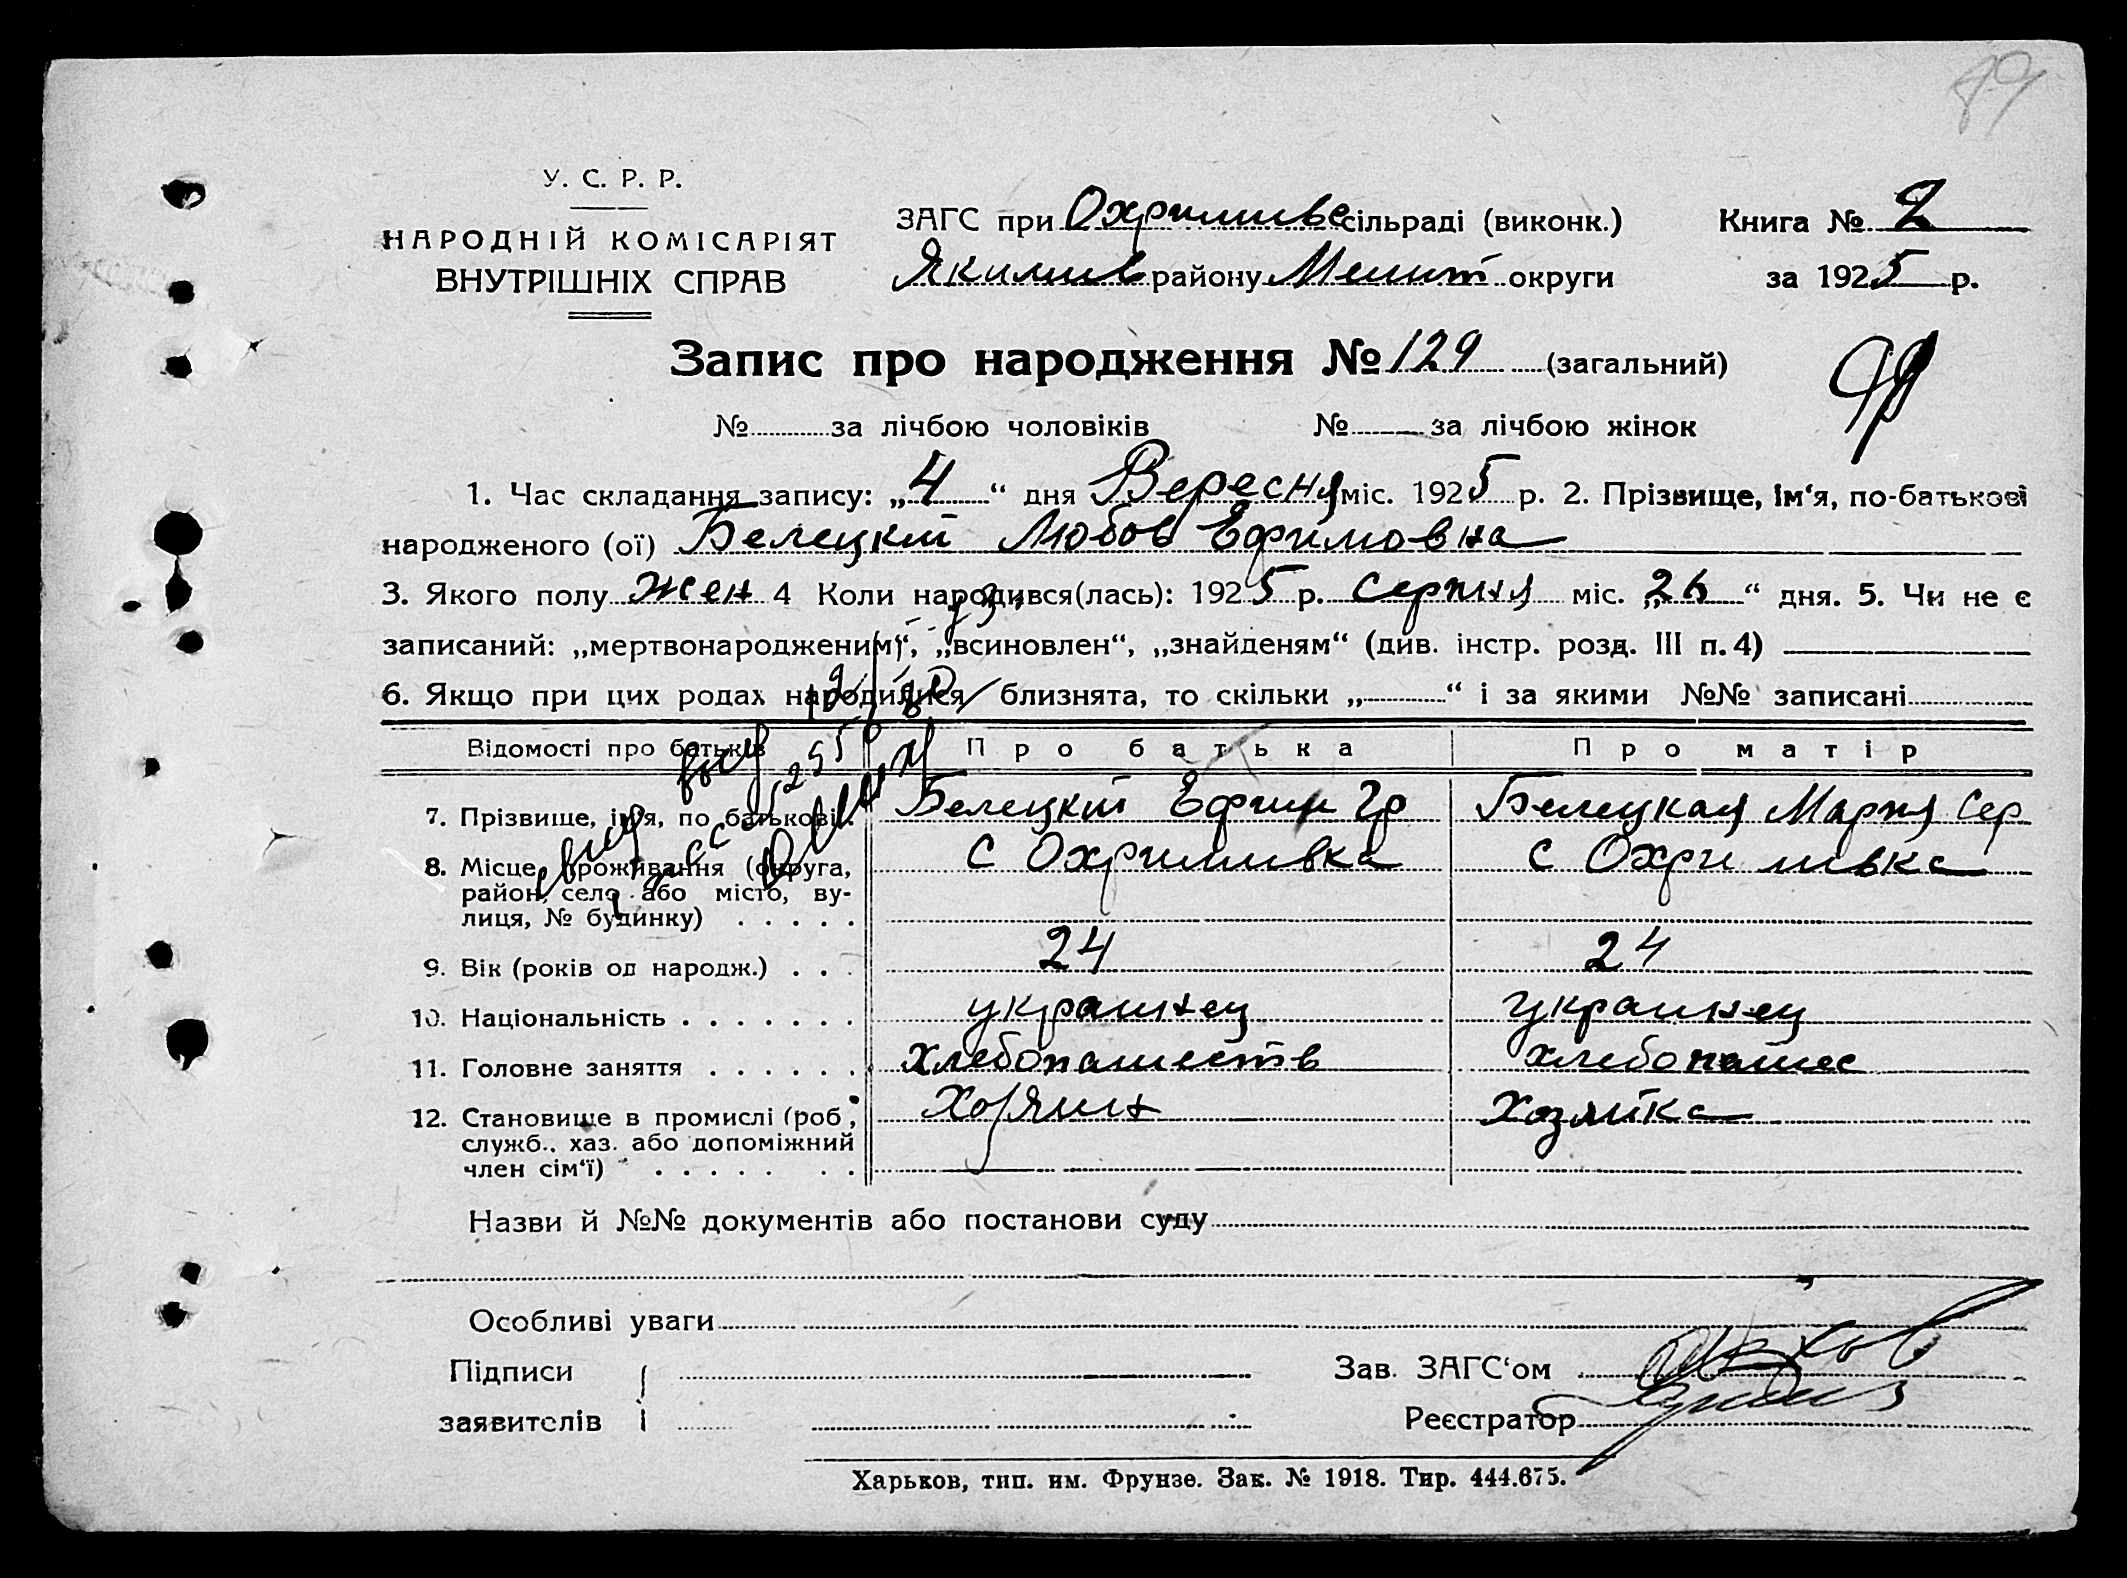 89
У. С. Р. Р.
НАРОДНІЙ КОМІСАРІЯТ
ВНУТРІШНІХ СПРАВ
ЗАГС при Охримивс сільраді (виконк.) Книга № 2
Якимив району Мелит округи за 1925 р.
Запис про народження № 129 (загальний)
№ за лічбою чоловіків № за лічбою жінок
1. Час складання запису: „4“ дня Вересня міс. 1925 р. 2. Прізвище, ім‘я, по-батькові
народженого (ої) Белецкий Любов Ефимовна
3. Якого полу жен 4 Коли народився(лась): 1925 р. Серпня міс. „26“ дня. 5. Чи не є
записаний: „мертвонародженим“, „всиновлен“, „знайденям“ (див. інстр. розд. III п. 4)
6. Якщо при цих родах народилися близнята, то скільки „ “ і за якими №№ записані
Відомості про батьків Про батька Про матір
7. Прізвище, ім‘я, по батькові. Белецкий Ефим Гр Белецкая Мария Сер
8. Місце проживання (округа, с Охримивка с Охримивка
район, село або місто, ву-
лиця, № будинку) . . . . .
9. Вік (років од народж.) . . . 24 24
10. Національність . . . . . . . украинец украинец
11. Головне заняття . . . . . . хлебопашеств хлебопашес
12. Становище в промислі (роб., Хозяин Хозяйка
служб., хаз. або допоміжний
член сім‘ї) . . . . . . .
Назви й №№ документів або постанови суду
Особливі уваги
Підписи Зав. ЗАГС‘ом
заявителів Реєстратор
Харьков, тип. им. Фрунзе. Зак. № 1918. Тир. 444.675.